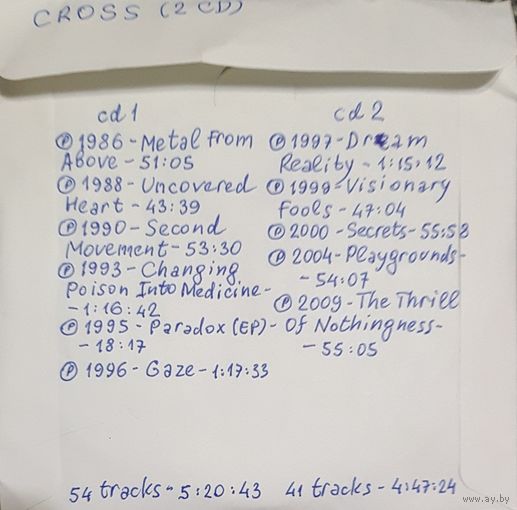 CROSS (2 CD)
cd 1
℗ 1986 - Metal From
Above - 51:05
℗ 1988 - Uncovered
Heart - 43:39
℗ 1990 - Second
Movement - 53:30
℗ 1993 - Changing
Poison Into Medicine -
- 1:16:42
℗ 1995 - Paradox (EP) -
- 18:17
℗ 1996 - Gaze - 1:17:33
54 tracks - 5:20:43
cd 2
℗ 1997 - Dream
Reality - 1:15:12
℗ 1999 - Visionary
Fools - 47:04
℗ 2000 - Secrets - 55:58
℗ 2004 - Playgrounds -
- 54:07
℗ 2009 - The Thrill
Of Nothingness -
- 55:05
41 tracks - 4:47:24
www.ay.by